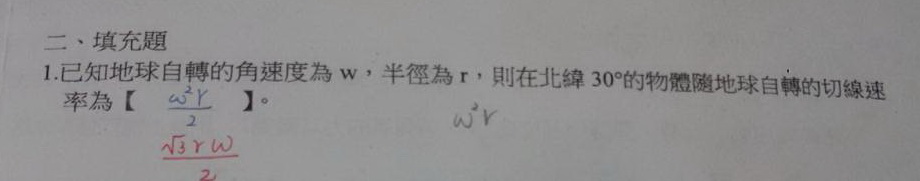 二、填充題
1.已知地球自轉的角速度為 w，半徑為 r，則在北緯 30°的物體隨地球自轉的切線速
率為【 ω²r/2 】。
ω²r
√3rω/2